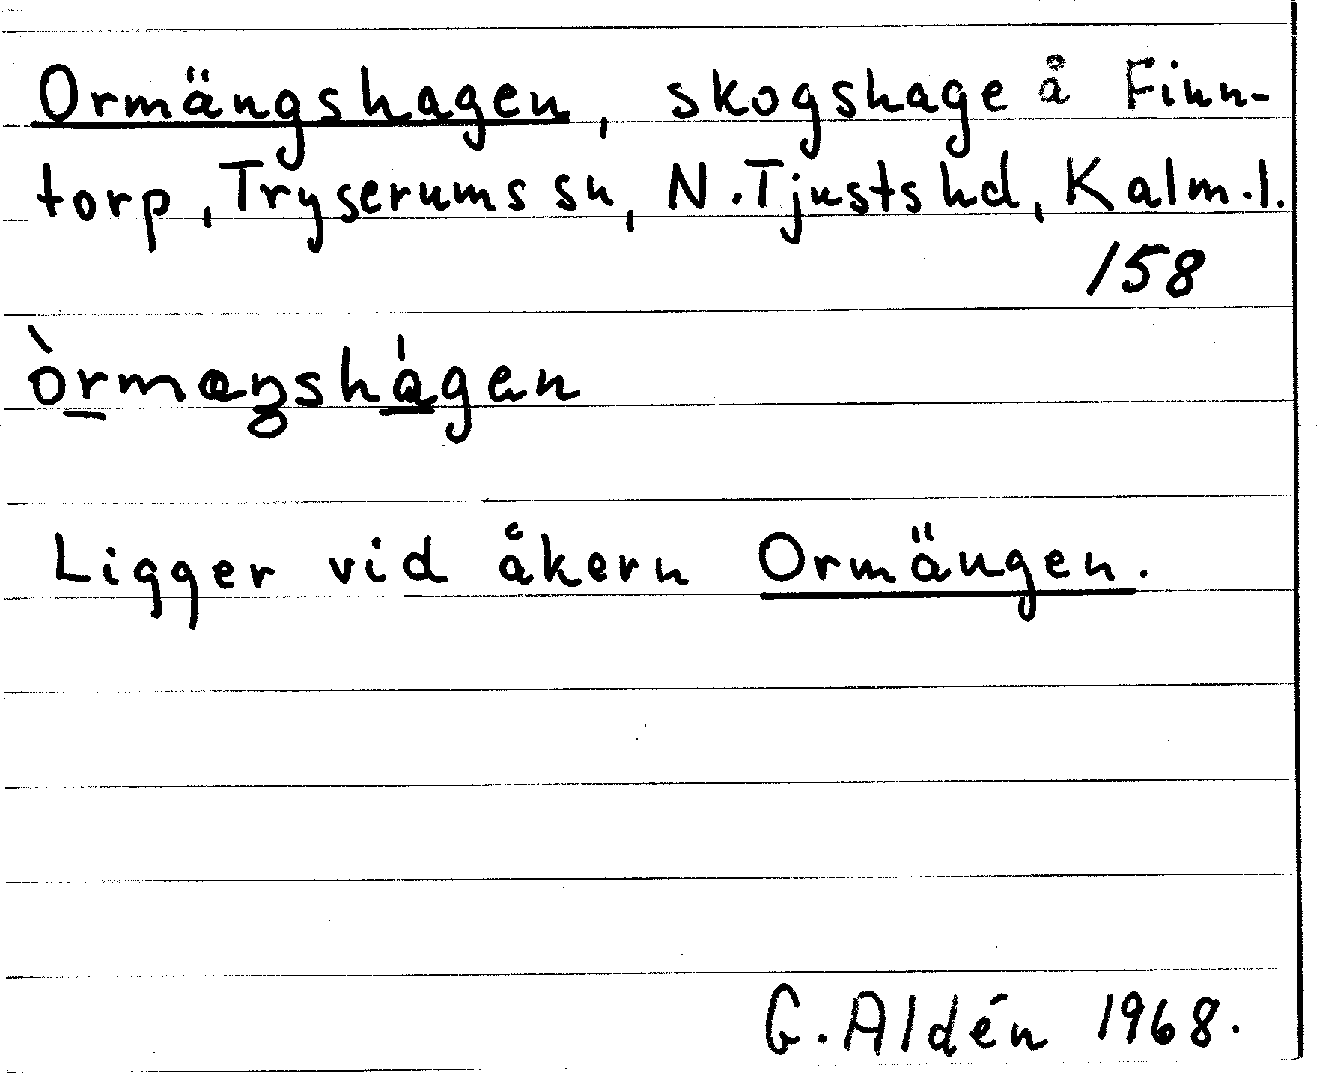 Ormängshagen, skogshage å Finn-
torp, Tryserums sn, N. Tjusts hd, Kalm. l.
158
òrmæŋshágen
Ligger vid åkern Ormängen.
G. Aldén 1968.